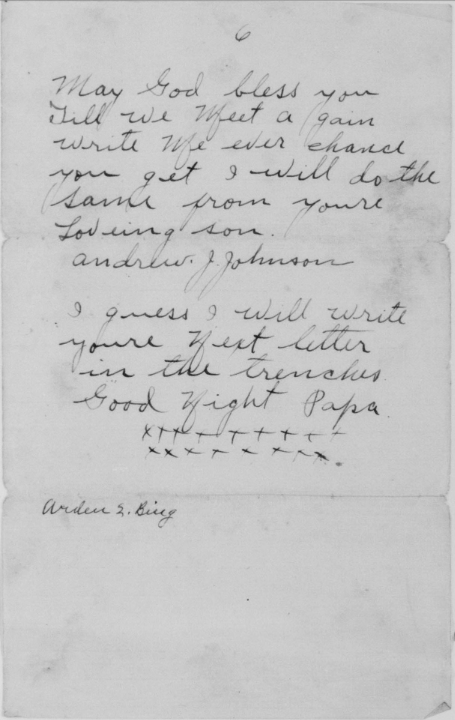 6
May God bless you
Till we Meet a gain
write Me ever chance
you get I will do the
same from youre
Loveing son.
Andrew. J. Johnson
I guess I will write
youre Next letter
in the trenches
Good Night Papa.
x++ + + + + + +
xx x + x + x x x.
Arden E.